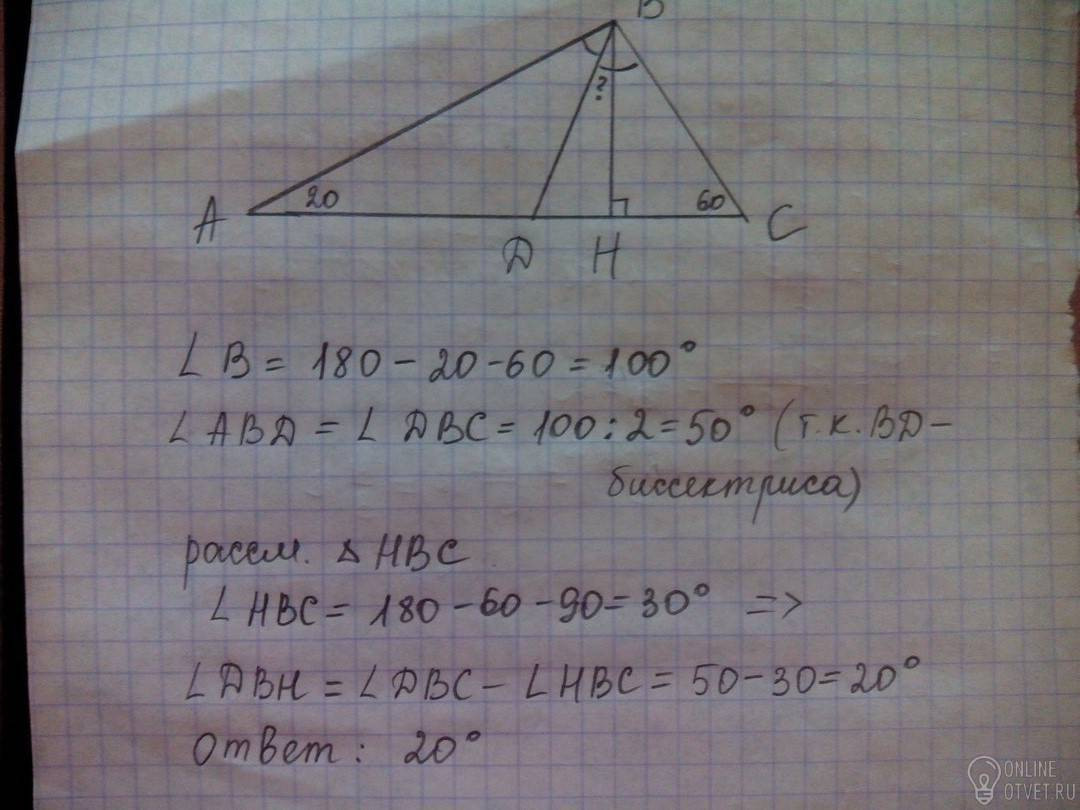 B
?
20
60
A
D
H
C
∠ B = 180 - 20 - 60 = 100°
∠ ABD = ∠ DBC = 100 : 2 = 50° (т.к. BD -
биссектриса)
рассм. △ HBC
∠ HBC = 180 - 60 - 90 = 30° =>
∠ DBH = ∠ DBC - ∠ HBC = 50 - 30 = 20°
Ответ : 20°
ONLINE
OTVET.RU